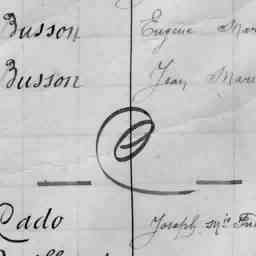 Busson Eugène Mar
Busson Jean Marie
C
Cado Joseph Mie Fra